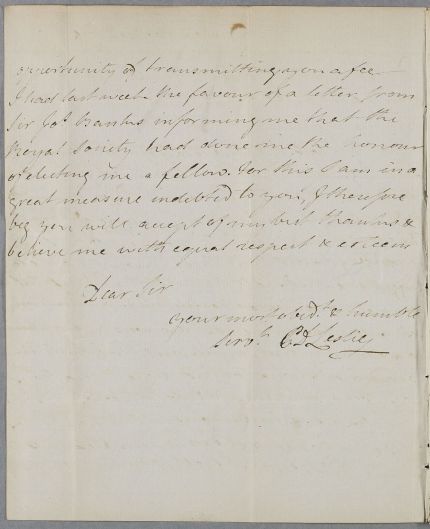 opportunity of transmitting upon a fee
I had last week the favour of a letter from
Sir Jos. Banks informing me that the
Royal Society had done me the honour
of electing me a fellow. For this I am in a
great measure indebted to you, I therefore
beg you will accept of my best thanks &
believe me with equal respect & esteem
Dear Sir
your most obedt. & humble
Servt. Leslie